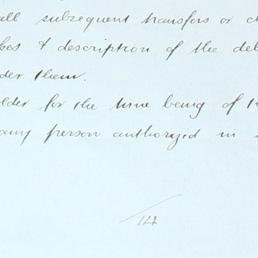 all subsequent transfers or
& description of the
them.
for the time being of
any person authorized in